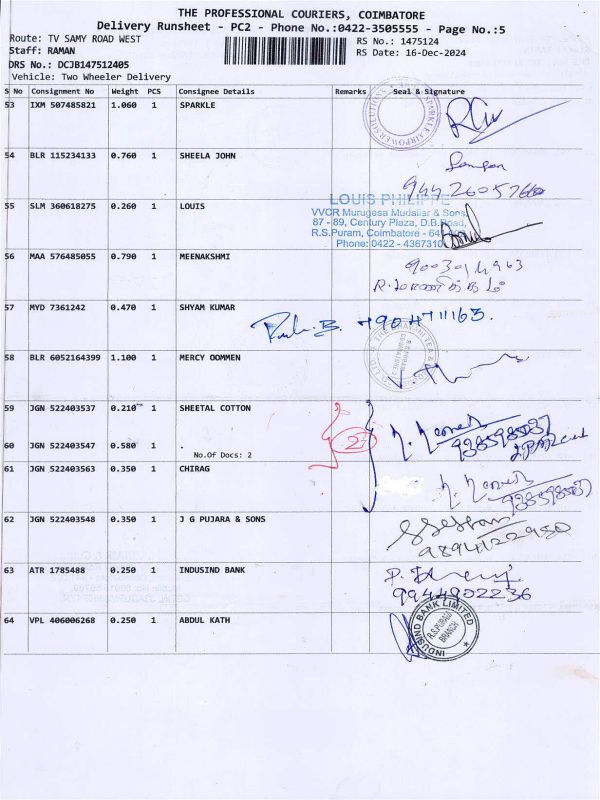 THE PROFESSIONAL COURIERS, COIMBATORE
Delivery Runsheet - PC2 - Phone No.:0422-3505555 - Page No.:5
Route: TV SAMY ROAD WEST
RS No.: 1475124
Staff: RAMAN
RS Date: 16-Dec-2024
DRS No.: DCJB147512405
Vehicle: Two Wheeler Delivery
S No Consignment No Weight PCS Consignee Details Remarks Seal & Signature
53 IXM 507485821 1.060 1 SPARKLE
54 BLR 115234133 0.760 1 SHEELA JOHN
LOUIS PHILIPPE
55 SLM 360618275 0.260 1 LOUIS
VVCR Murugesa Mudaliar & Sons
87 - 89, Century Plaza, D.B.Road,
R.S.Puram, Coimbatore - 64
Phone: 0422 - 4367310
56 MAA 576485055 0.790 1 MEENAKSHMI
57 MYD 7361242 0.470 1 SHYAM KUMAR
58 BLR 6052164399 1.100 1 MERCY OOMMEN
59 JGN 522403537 0.210 1 SHEETAL COTTON
27
60 JGN 522403547 0.580 1
No.Of Docs: 2
61 JGN 522403563 0.350 1 CHIRAG
62 JGN 522403548 0.350 1 J G PUJARA & SONS
63 ATR 1785488 0.250 1 INDUSIND BANK
9944902236
64 VPL 406006268 0.250 1 ABDUL KATH
INDUSIND BANK LIMITED
R.S.PURAM
BRANCH